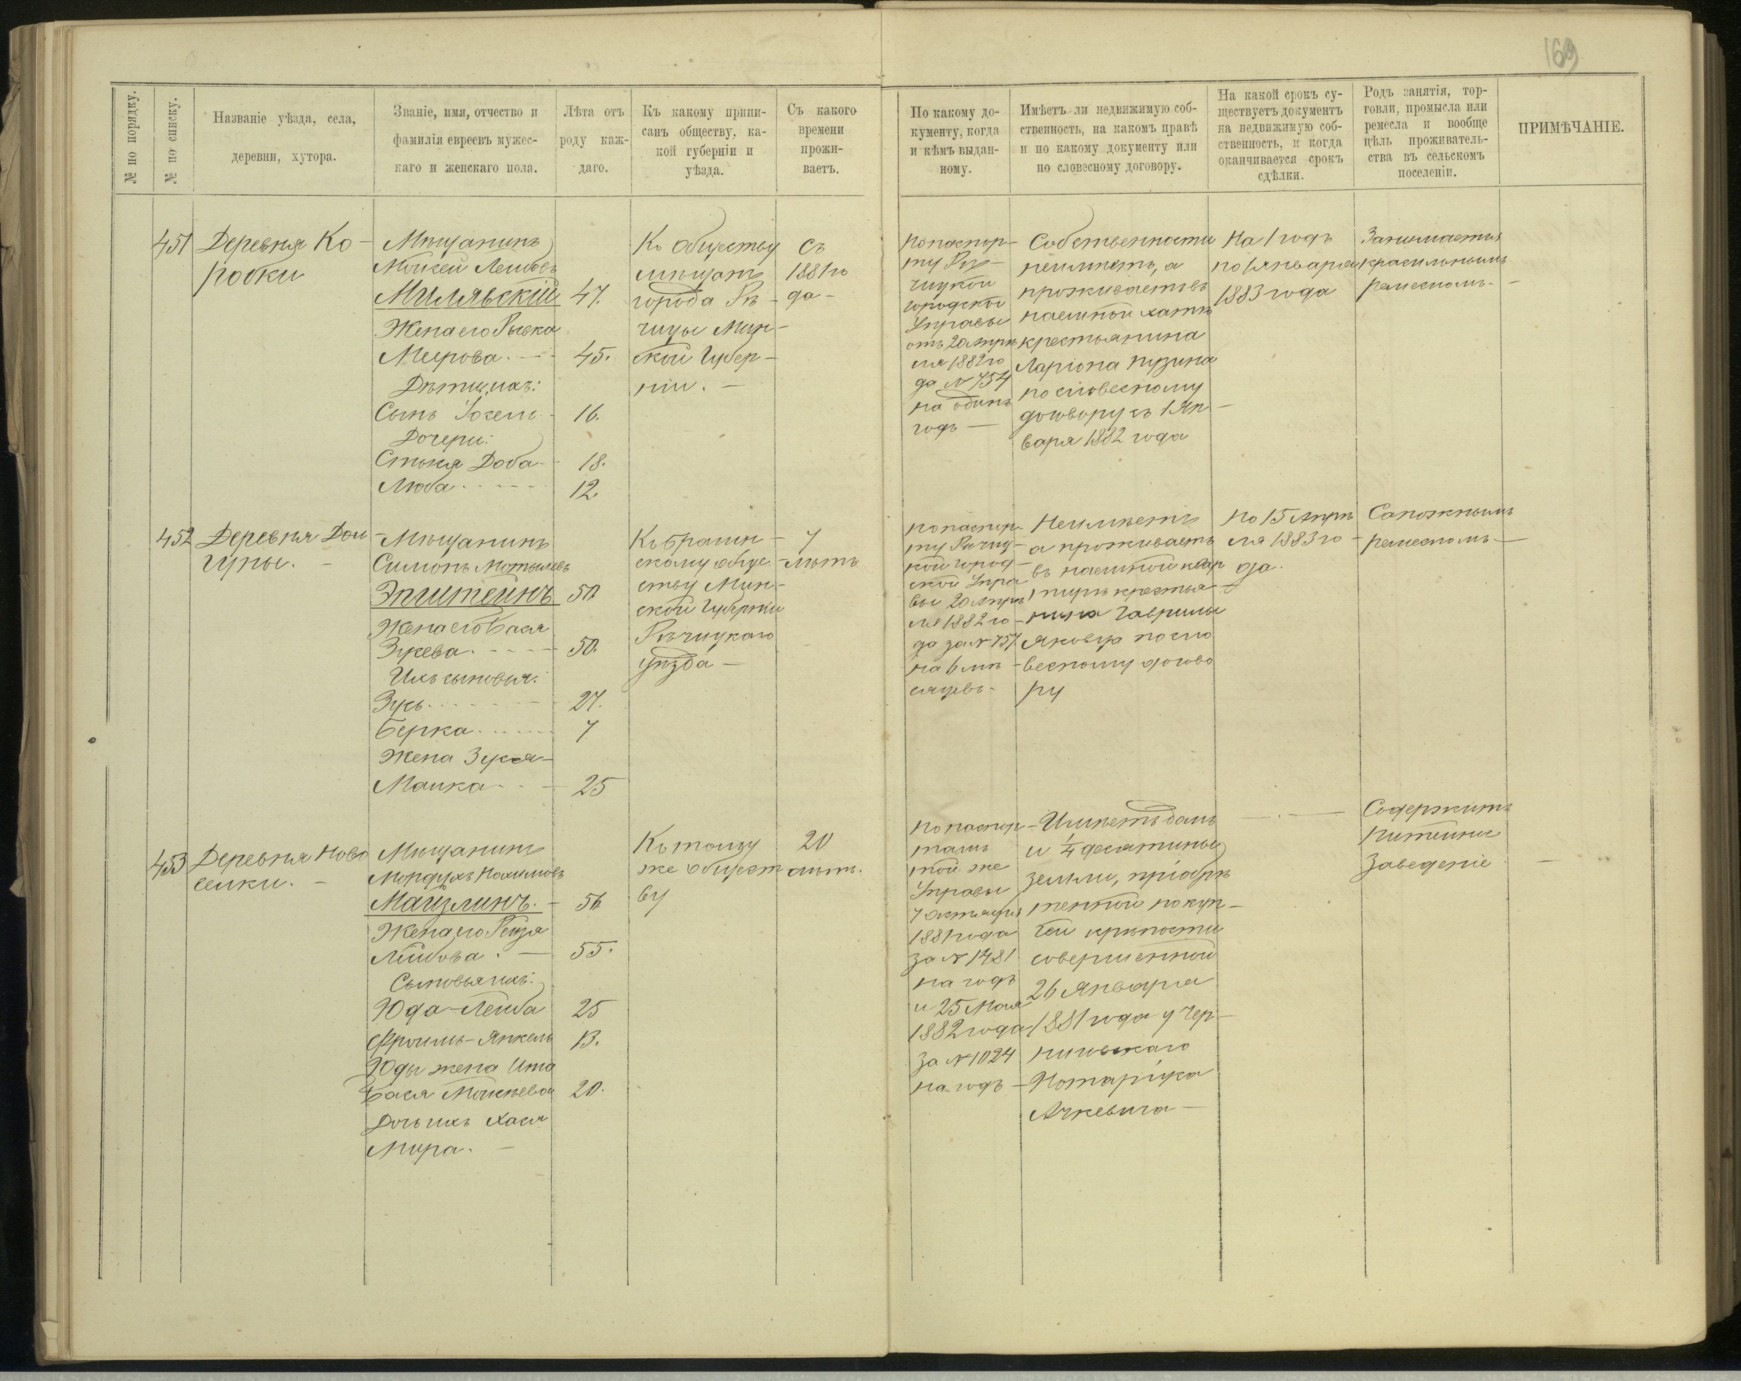 169
№ по порядку.
№ по списку.
Названіе уѣзда, села,
деревни, хутора.
Званіе, имя, отчество и
фамилія евреевъ мужес-
каго и женскаго пола.
Лѣта отъ
роду каж-
даго.
Къ какому припи-
санъ обществу, ка-
кой губерніи и
уѣзда.
Съ какого
времени
прожи-
ваетъ.
По какому до-
кументу, когда
и кѣмъ выдан-
ному.
Имѣетъ ли недвижимую соб-
ственность, на какомъ правѣ
и по какому документу или
по словесному договору.
На какой срокъ су-
ществуетъ документъ
на недвижимую соб-
ственность, и когда
оканчивается срокъ
сдѣлки.
Родъ занятія, тор-
говли, промысла или
ремесла и вообще
цѣль проживатель-
ства въ сельскомъ
поселеніи.
ПРИМѢЧАНІЕ.
451
Деревня Ко-
робки
Мѣщанинъ
Моисей Лейбовъ
Милявскій 47.
Жена его Рывка
Меерова 45.
Дѣти ихъ:
Сынъ Іосель 16.
Дочери:
Стыся Доба 18.
Люба 12.
Къ обществу
мѣщанъ
города Рѣ-
чицы Мин-
ской Губер-
ніи.
Съ
1881 го
да
По паспор-
ту Рѣ-
чицкой
городской
Управы
отъ 20 Апрѣ
ля 1882 го
да № 754
на одинъ
годъ
Собственности
неимѣетъ, а
проживаетъ въ
наемной хатѣ
крестьянина
Ларіона Кузина
по словесному
договору съ 1 Ян-
варя 1882 года
На 1 годъ
по 1 Января
1883 года
Занимается
красильнымъ
ремесломъ.
452
Деревня Дол
гуны.
Мѣщанинъ
Симонъ Мотылевъ
Эпштейнъ 50
Жена его Бася
Зусева 50.
Ихъ сыновья:
Зусь 27.
Берка 7
Жена Зуся
Малка 25
Къ Брагин-
скому обще-
ству Мин-
ской Губерніи
Рѣчицкаго
уѣзда
7
лѣтъ
По паспор-
ту Рѣчиц-
кой город-
ской Упра
вы 20 Апрѣ
ля 1882 го-
да за № 757
на 6 мѣ-
сяцевъ.
Неимѣетъ
а проживаетъ
въ наемной квар
тирѣ крестья-
нина Гаврилы
Яковца по сло
весному догово
ру
По 15 Апрѣ
ля 1883 го-
да.
Сапожнымъ
ремесломъ
453
Деревня Ново
селки.
Мѣщанинъ
Мордухъ Нохимовъ
Майзлинъ. 56
Жена его Рейзя
Лейбова. 55.
Сыновья ихъ:
Юда-Лейба 25
Фроимъ-Янкель 13.
Юды жена Ита
Бася Моисеева 20.
Дочь ихъ Хася
Мира.
Къ тому
же общест
ву
20
лѣтъ.
По паспор-
тамъ
той же
Управы
7 Октября
1881 года
за № 1481
на годъ
и 25 Мая
1882 года
за № 1024
на годъ
Имѣетъ домъ
и ¼ десятины
земли, пріобрѣ
тенной по куп-
чей крѣпости
совершенной
26 Января
1881 года у Чер-
ниговскаго
Нотаріуса
Ачкевича
Содержитъ
питейное
заведеніе